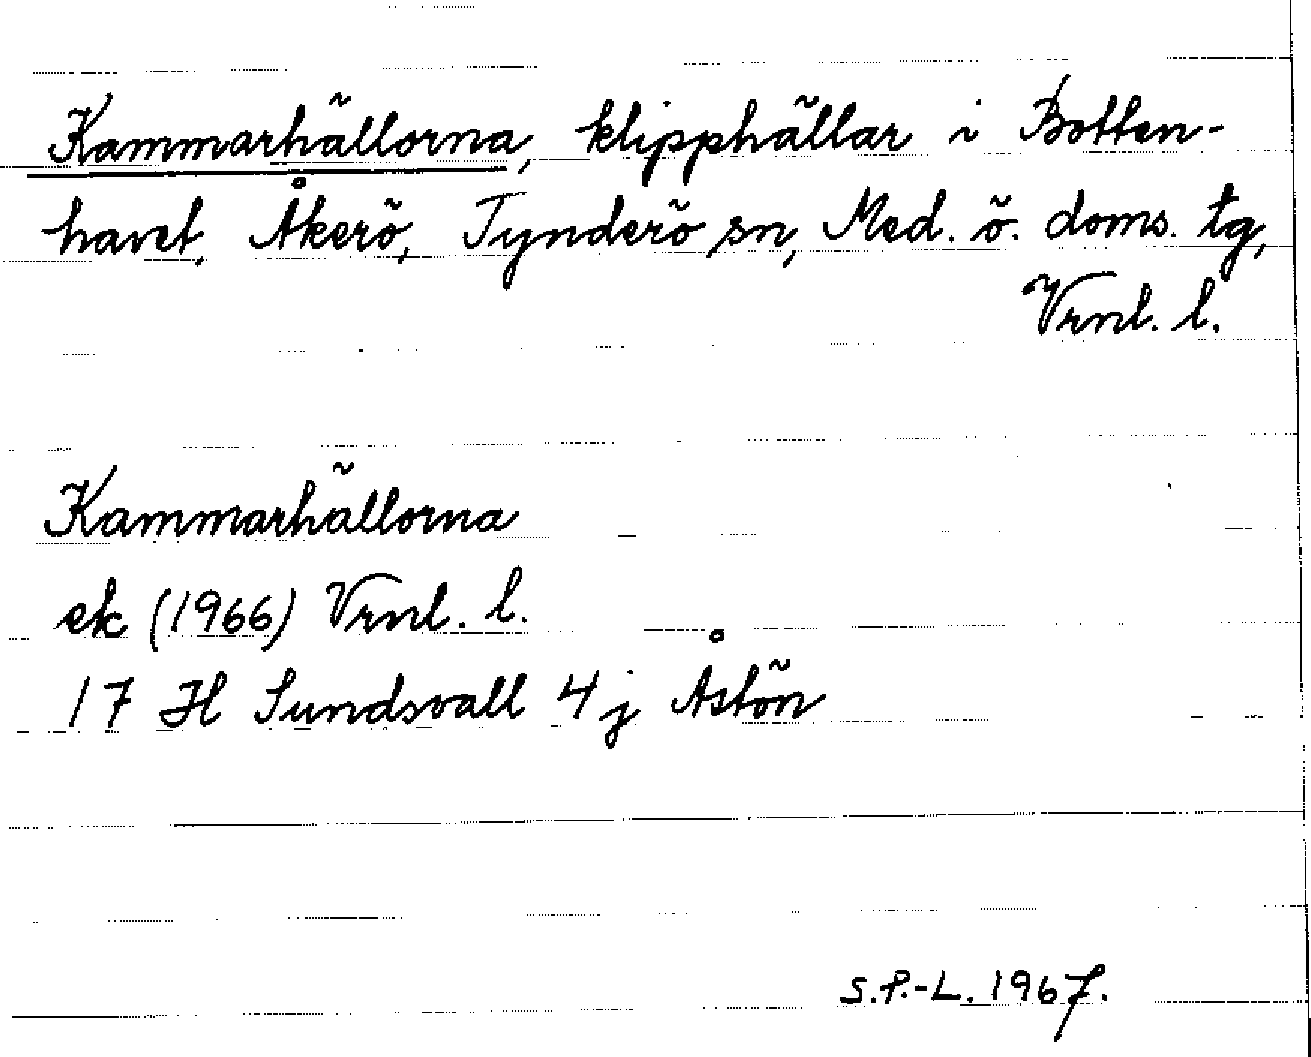 Kammarhällorna, klipphällar i Botten-
havet, Åkerö, Tynderö sn, Med. ö. doms. tg,
Vrnl. l.
Kammarhällorna
ek (1966) Vrnl. l.
17 H Sundsvall 4 j Åstön
S.P.-L. 1967.